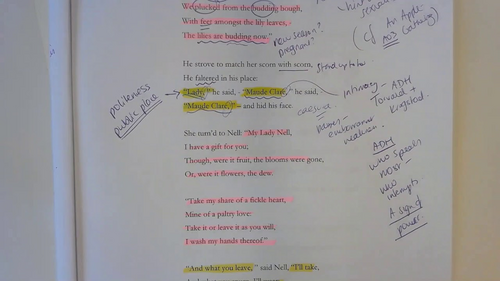 We plucked from the budding bough,
With feet amongst the lily leaves, -
The lilies are budding now."
new season?
pregnant?
(Cf An Apple
Gathering)
He strove to match her scorn with scorn,
He faltered in his place:
"Lady," he said, - "Maude Clare," he said,
"Maude Clare," – and hid his face.
politeness
public place
intimacy - ADH
Toward +
caesura
She turn'd to Nell: "My Lady Nell,
I have a gift for you;
Though, were it fruit, the blooms were gone,
Or, were it flowers, the dew.
ADH
who speaks
most -
who
interrupts
A sign of
power.
"Take my share of a fickle heart,
Mine of a paltry love:
Take it or leave it as you will,
I wash my hands thereof."
"And what you leave," said Nell, "I'll take,